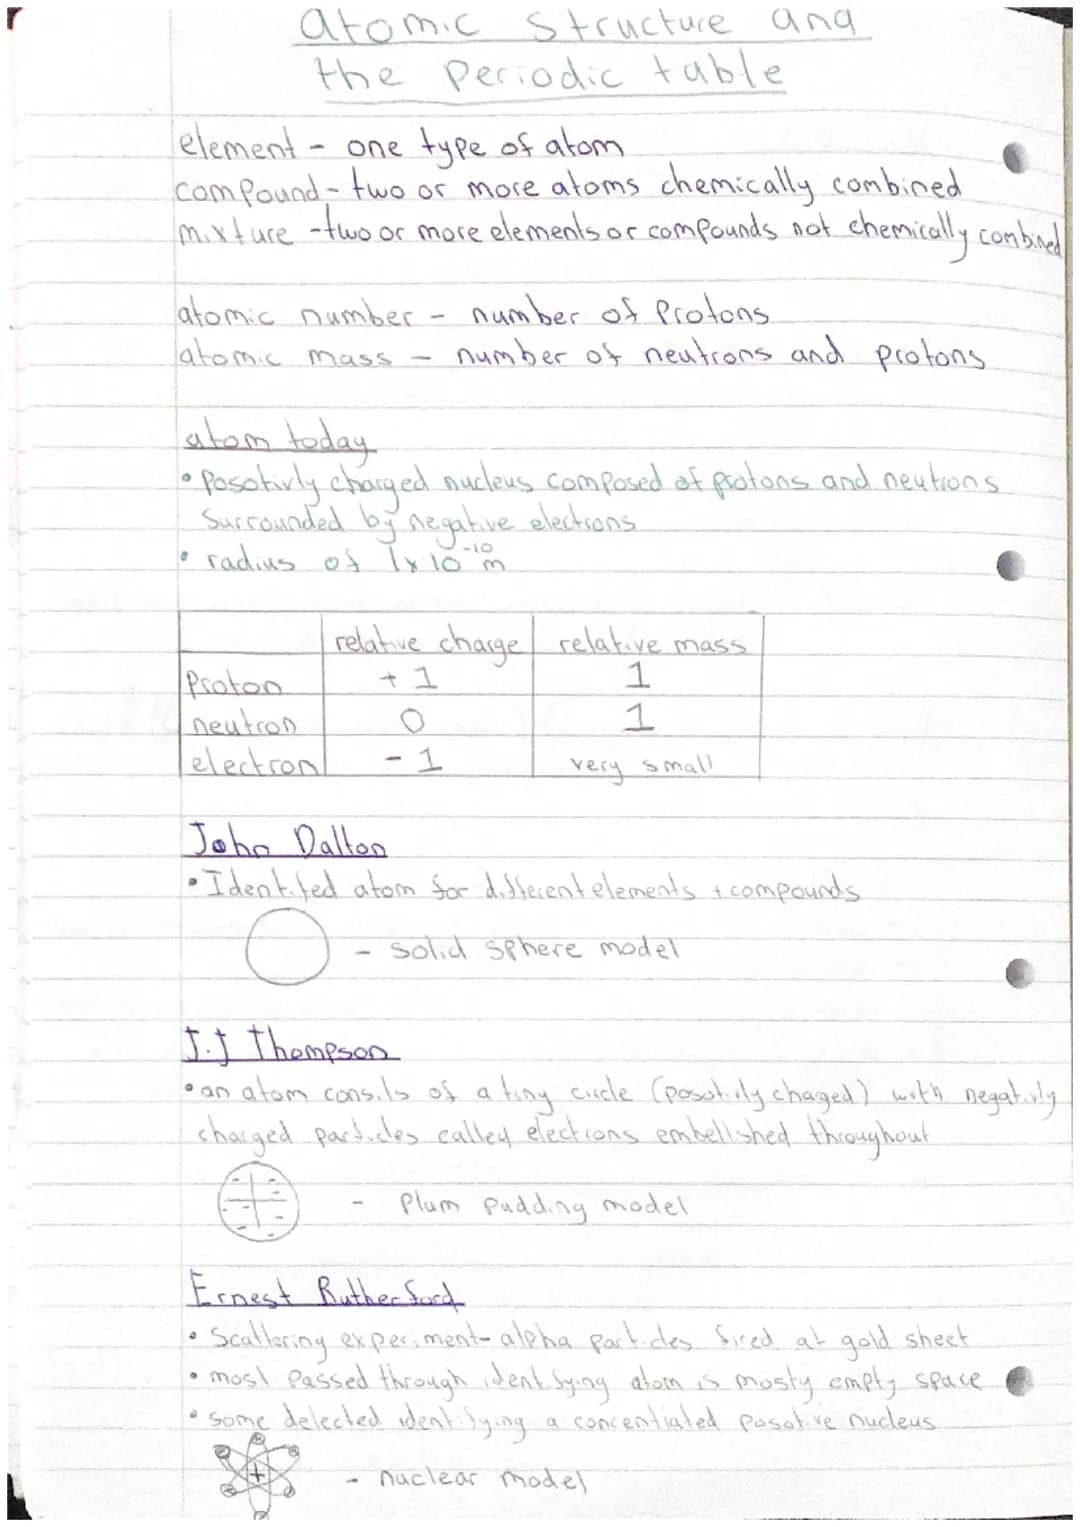 atomic structure and
the periodic table
element - one type of atom
compound - two or more atoms chemically combined
mixture - two or more elements or compounds not chemically combined
atomic number - number of protons
atomic mass - number of neutrons and protons
atom today
• Posotivly charged nucleus composed of protons and neutrons
surrounded by negative electrons
• radius of 1x10⁻¹⁰m
relative charge relative mass
Proton +1 1
neutron 0 1
electron -1 very small
John Dalton
• Identifed atom for different elements + compounds
- solid sphere model
J.J Thompson
• an atom consits of a tiny circle (posotivly chaged) with negativly
charged particles called electrons embellished throughout
- Plum pudding model
Ernest Rutherford
• Scattering experiment - alpha particles fired at gold sheet
• most passed through identifying atom is mosty empty space
• some delected identifying a concentrated posotive nucleus
+
- nuclear model